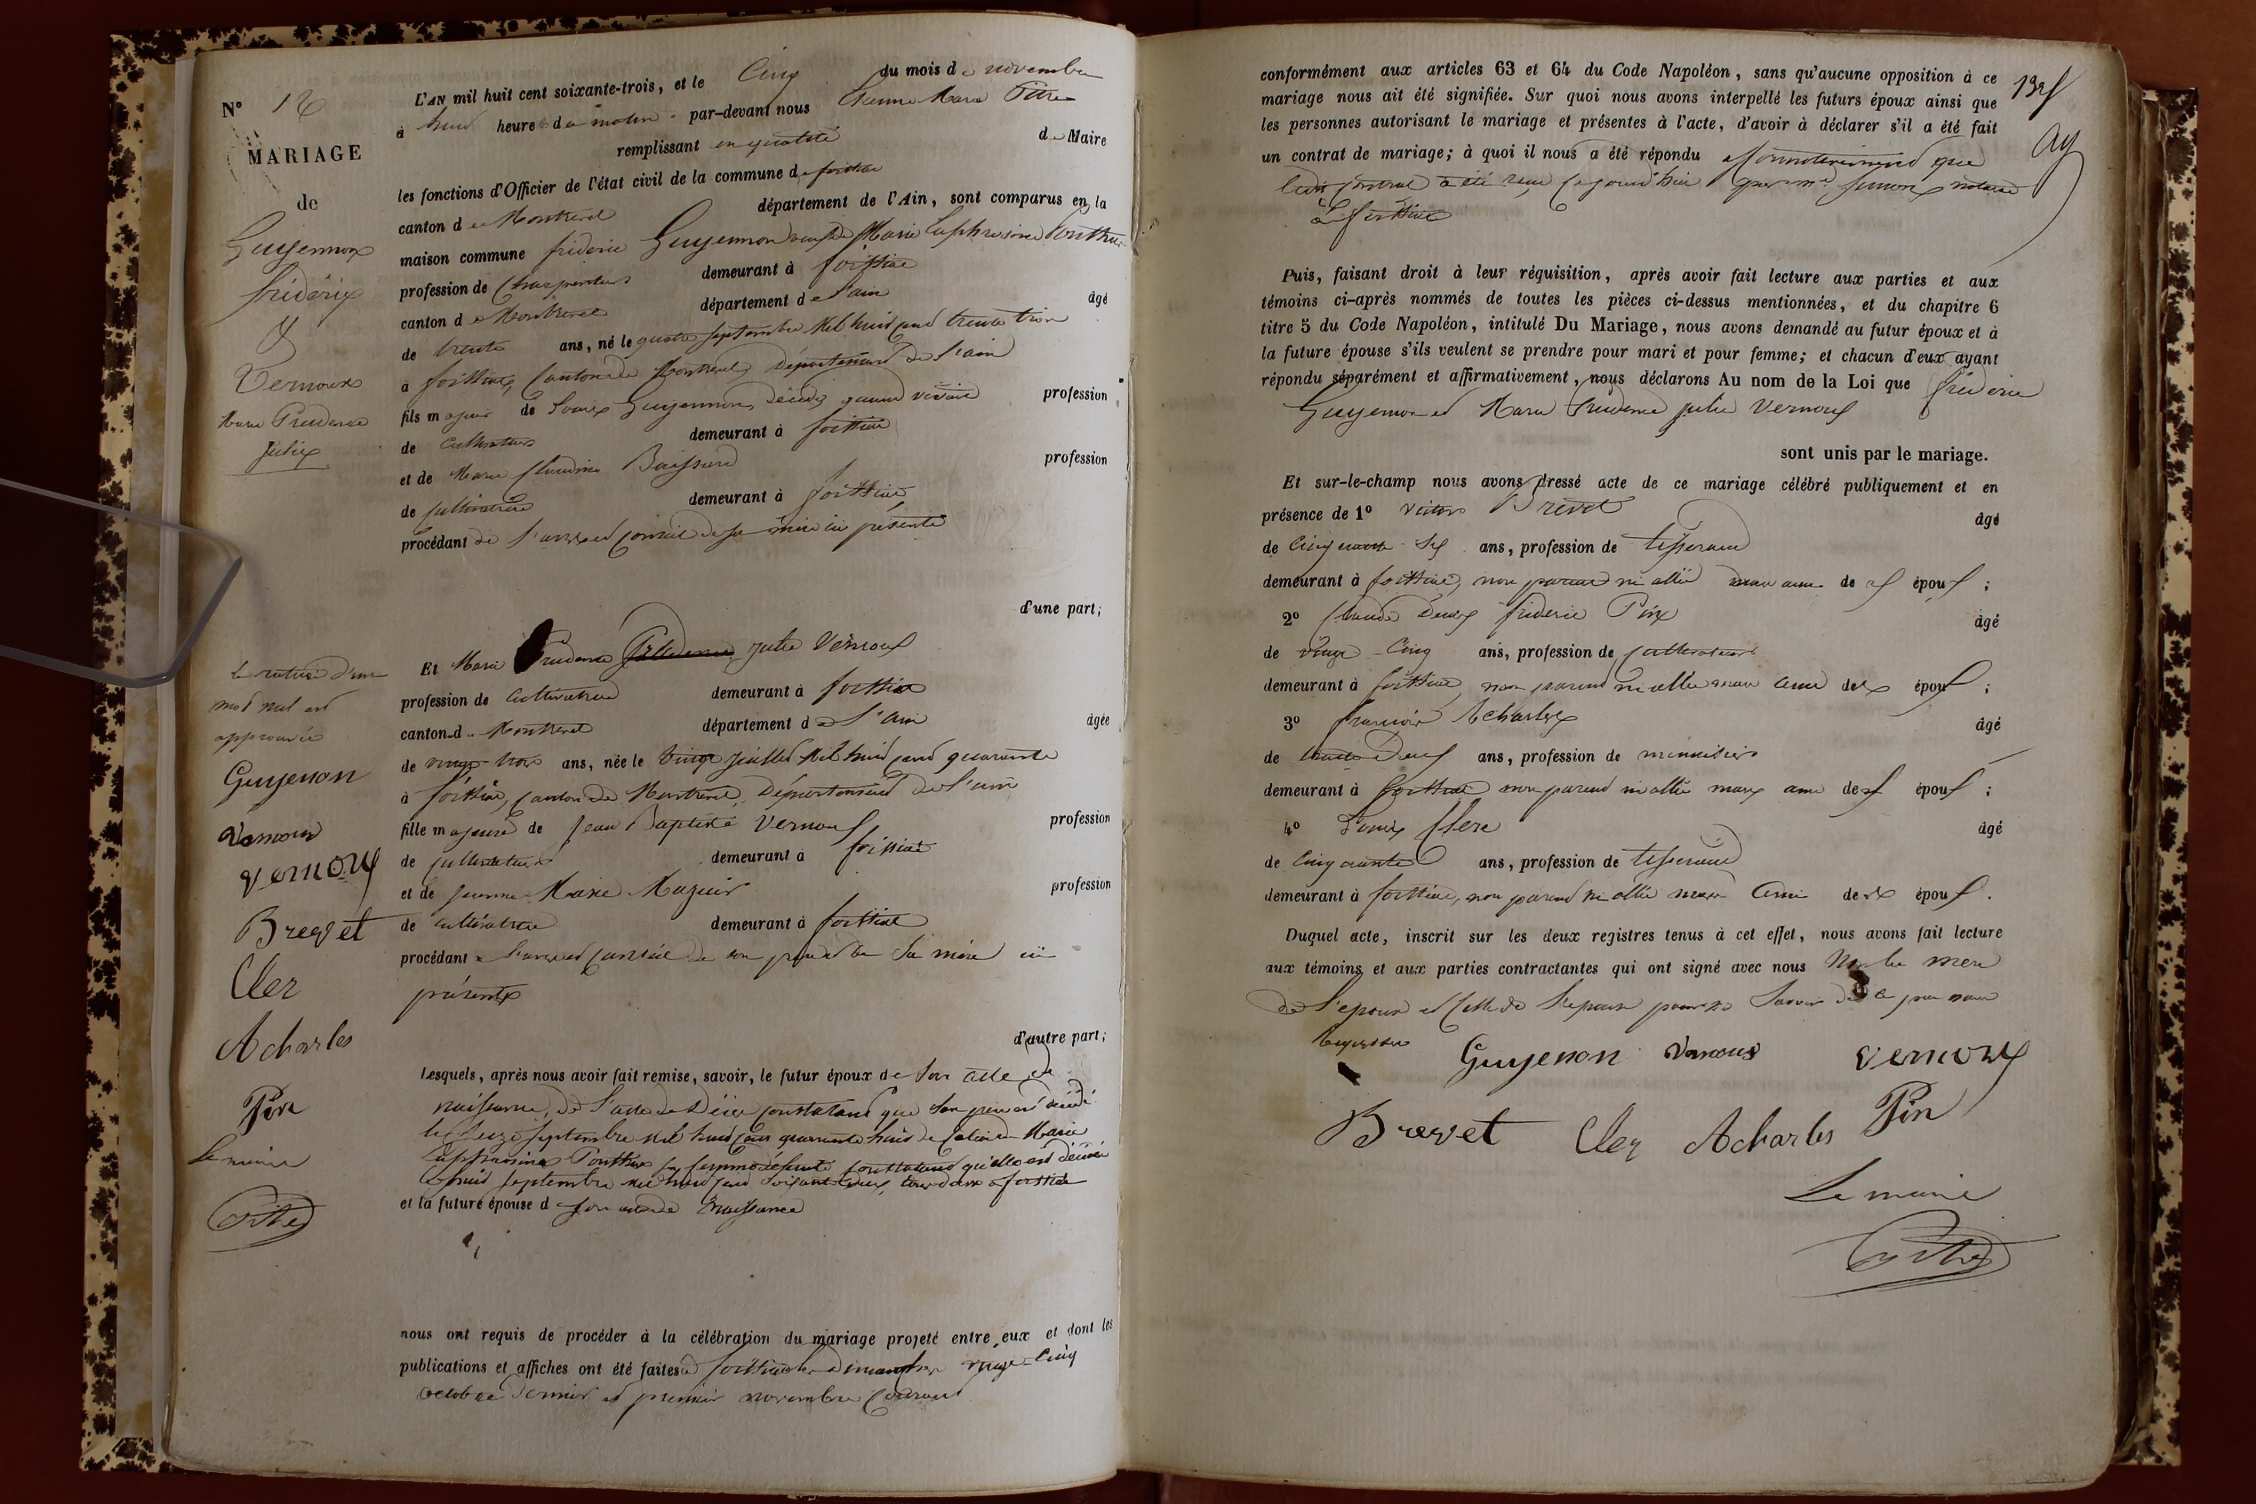 N° 12
MARIAGE
de
Guyennon
frédéric
&
Vernoux
Marie Prudence
Julie
L'AN mil huit cent soixante-trois, et le Cinq du mois de novembre
à huit heures du matin par-devant nous Etienne Marie Pitre
remplissant en qualité de Maire
les fonctions d'Officier de l'état civil de la commune de foissiat
canton de Montrevel département de l'Ain, sont comparus en la
maison commune frédéric Guyennon veuf de Marie Euphrosine Ponthus
profession de Charpentier demeurant à foissiat
canton de Montrevel département de l'ain âgé
de trente ans, né le quatre septembre Mil huit cent trente trois
à foissiat, canton de Montrevel, Département de l'ain
fils majeur de Louis Guyennon, décédé, quand vivait profession
de cultivateur demeurant à foissiat
et de Marie Claudine Buissard profession
de cultivatrice demeurant à foissiat
procédant de l'avis et Conseil de sa mère ici présente
d'une part;
la rature d'un
mot nul est
approuvée
Guyenon
Vernoux
vernoux
Brevet
Cler
Acharles
Pin
Le maire
Pitre
Et Marie Prudence Prudence Julie Vernoux
profession de cultivatrice demeurant à foissiat
canton de Montrevel département de l'ain âgée
de vingt-trois ans, née le vingt juillet Mil huit cent quarante
à foissiat, canton de Montrevel, Département de l'ain
fille majeure de Jean Baptiste Vernoux profession
de cultivateur demeurant à foissiat
et de Jeanne-Marie Mazuir profession
de cultivatrice demeurant à foissiat
procédant de l'avis et Conseil de son père et de Sa mère ici
présents
d'autre part;
Lesquels, après nous avoir fait remise, savoir, le futur époux de Son acte de
naissance, de l'acte de Décès constatant que Son père est décédé
le septembre mil huit cent quarante huit de celui de Marie
Euphrosine Ponthus sa femme défunte constatant qu'elle est décédée
le huit septembre mil huit cent soixante deux, tous deux à foissiat
et la future épouse de son acte de naissance
nous ont requis de procéder à la célébration du mariage projeté entre eux et dont les
publications et affiches ont été faites à foissiat les dimanches vingt-cinq
octobre dernier et premier novembre Courant
conformément aux articles 63 et 64 du Code Napoléon, sans qu'aucune opposition à ce
mariage nous ait été signifiée. Sur quoi nous avons interpellé les futurs époux ainsi que
les personnes autorisant le mariage et présentes à l'acte, d'avoir à déclarer s'il a été fait
un contrat de mariage; à quoi il nous a été répondu affirmativement que
ledit contrat a été reçu ce jourd'hui par me notaire
à foissiat
Puis, faisant droit à leur réquisition, après avoir fait lecture aux parties et aux
témoins ci-après nommés de toutes les pièces ci-dessus mentionnées, et du chapitre 6
titre 5 du Code Napoléon, intitulé Du Mariage, nous avons demandé au futur époux et à
la future épouse s'ils veulent se prendre pour mari et pour femme; et chacun d'eux ayant
répondu séparément et affirmativement, nous déclarons Au nom de la Loi que frédéric
Guyennon et Marie Prudence Julie Vernoux
sont unis par le mariage.
Et sur-le-champ nous avons dressé acte de ce mariage célébré publiquement et en
présence de 1° Victor Brevet âgé
de Cinquante Six ans, profession de tisserand
demeurant à foissiat, non parent ni allié mais ami des époux;
2° Claude Denis frédéric Pin âgé
de vingt-Cinq ans, profession de cultivateur
demeurant à foissiat, non parent ni allié mais ami des époux;
3° françois Acharles âgé
de trente Deux ans, profession de menuisier
demeurant à foissiat non parent ni allié mais ami des époux;
4° Louis Clere âgé
de Cinquante ans, profession de tisserand
demeurant à foissiat, non parent ni allié mais ami des époux.
Duquel acte, inscrit sur les deux registres tenus à cet effet, nous avons fait lecture
aux témoins et aux parties contractantes qui ont signé avec nous Non la mère
de l'époux et celle de l'épouse pour ne Savoir de ce par nous
requises
Guyenon Vernoux vernoux
Brevet Cler Acharles Pin
Le maire
Pitre